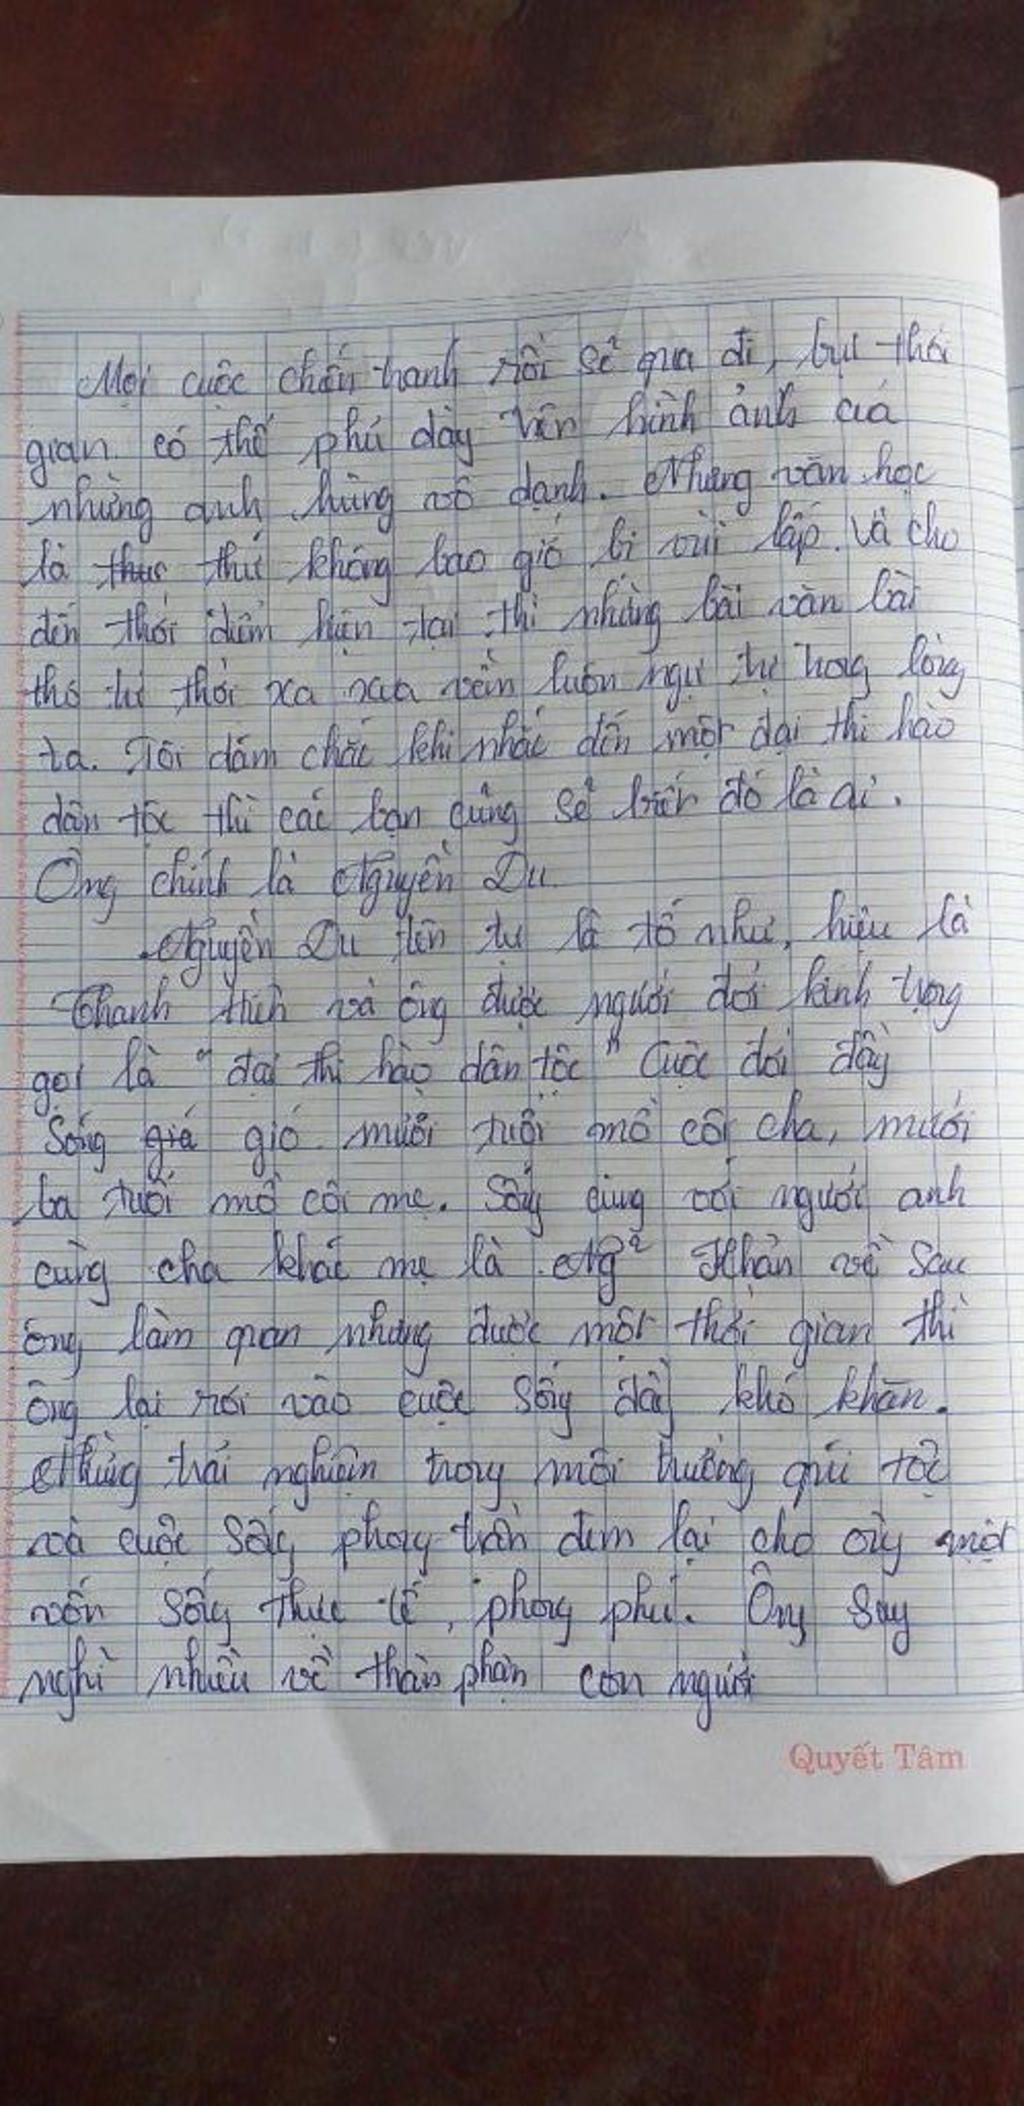 Mọi cuộc chiến tranh rồi sẽ qua đi, bụi thời
gian có thể phủ dày lên hình ảnh của
những anh hùng vô danh. Nhưng văn học
là thực thứ không bao giờ bị vùi lấp. Và cho
đến thời điểm hiện tại thì những bài văn bài
thơ từ thời xa xưa vẫn luôn ngự trị trong lòng
ta. Tôi dám chắc khi nhắc đến một đại thi hào
dân tộc thì các bạn cũng sẽ biết đó là ai.
Ông chính là Nguyễn Du
Nguyễn Du tên tự là tố như, hiệu là
Thanh Hiên và ông được người đời kính trọng
gọi là "đại thi hào dân tộc" Cuộc đời đầy
sóng giá gió mười tuổi mồ côi cha, mười
ba tuổi mồ côi mẹ. Sống cùng với người anh
cùng cha khác mẹ là Ng² Khản về sau
ông làm quan nhưng được một thời gian thì
ông lại rơi vào cuộc sống đầy khó khăn.
Những trải nghiệm trong môi trường quí tộc
và cuộc sống phong trần đem lại cho ông một
vốn sống thực tế, phong phú. Ông suy
nghĩ nhiều về thân phận con người
Quyết Tâm